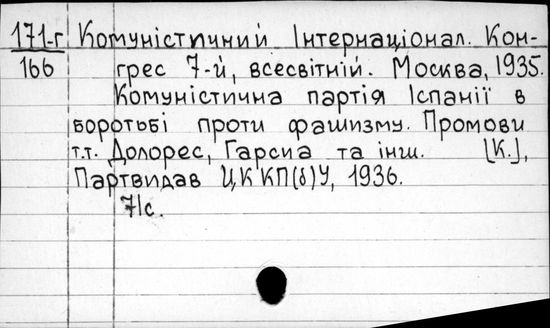 171-г Комуністичний Інтернаціонал. Кон-
166 грес 7-й, всесвітній. Москва, 1935.
Комуністична партія Іспанії в
боротьбі проти фашизму. Промови
т.т. Долорес, Гарсиа та інш. [К.],
Партвидав ЦК КП(б)У, 1936.
71с.